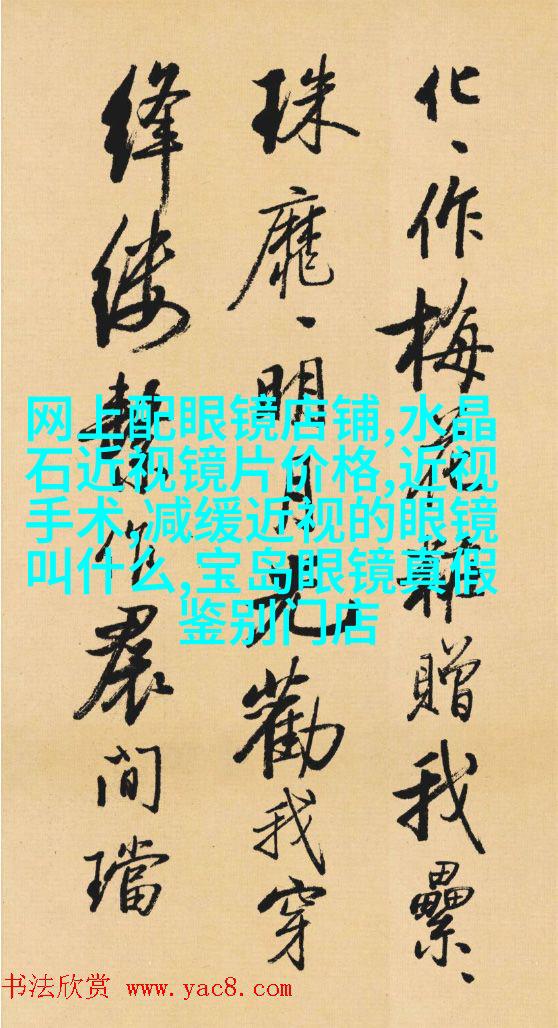 化、作梅花贈我纍、
珠靡、明月光勸我穿
絳縷繫作裠間璫
网上配眼镜店铺,水晶
石近视镜片价格,近视
手术,减缓近视的眼镜
叫什么,宝岛眼镜真假
鉴别门店
书法欣赏 www.yac8.com